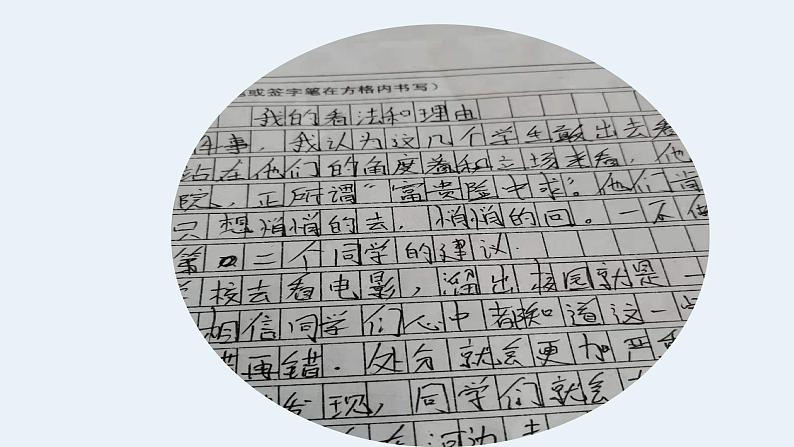 或签字笔在方格内书写）
我的看法和理由
件事，我认为这几个学生敢出去看
站在他们的角度着和立场来看，他
院，正所谓“富贵险中求”。他们肯
只想悄悄的去，悄悄的回。一不做
第二个同学的建议
学校去看电影，溜出校园就是一
相信同学们心中都知道这一
错再错．处分就会更加严重
发现，同学们就会
河边